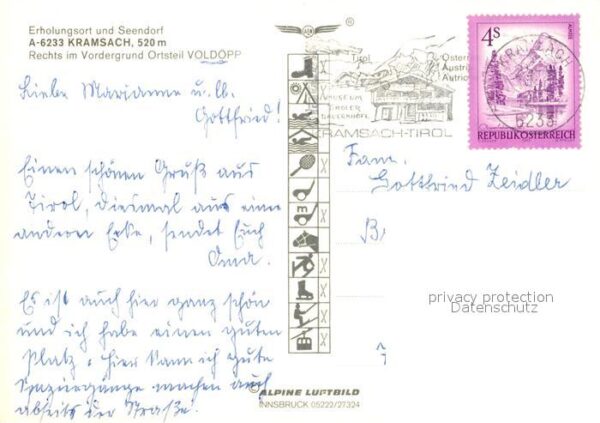 Erholungsort und Seendorf
A-6233 KRAMSACH, 520 m
Rechts im Vordergrund Ortsteil VOLDÖPP
Liebe Marianne u. ll.
Gottfried!
Einen schönen Gruß aus
Tirol, diesmal aus eine
anderen Ecke, sendet Euch
Oma.
Es ist auch hier ganz schön
und ich habe einen guten
Platz. Hier kann ich gute
Spaziergänge machen auch
abseits der Straße.
Tirol
Österr
Austri
Autric
MUSEUM
TIROLER
BAUERNHÖFE
KRAMSACH-TIROL
KRAMSACH
6233
4S
REPUBLIK ÖSTERREICH
Fam.
Gottfried Zeidler
B
privacy protection
Datenschutz
ALPINE LUFTBILD
INNSBRUCK 05222/27324